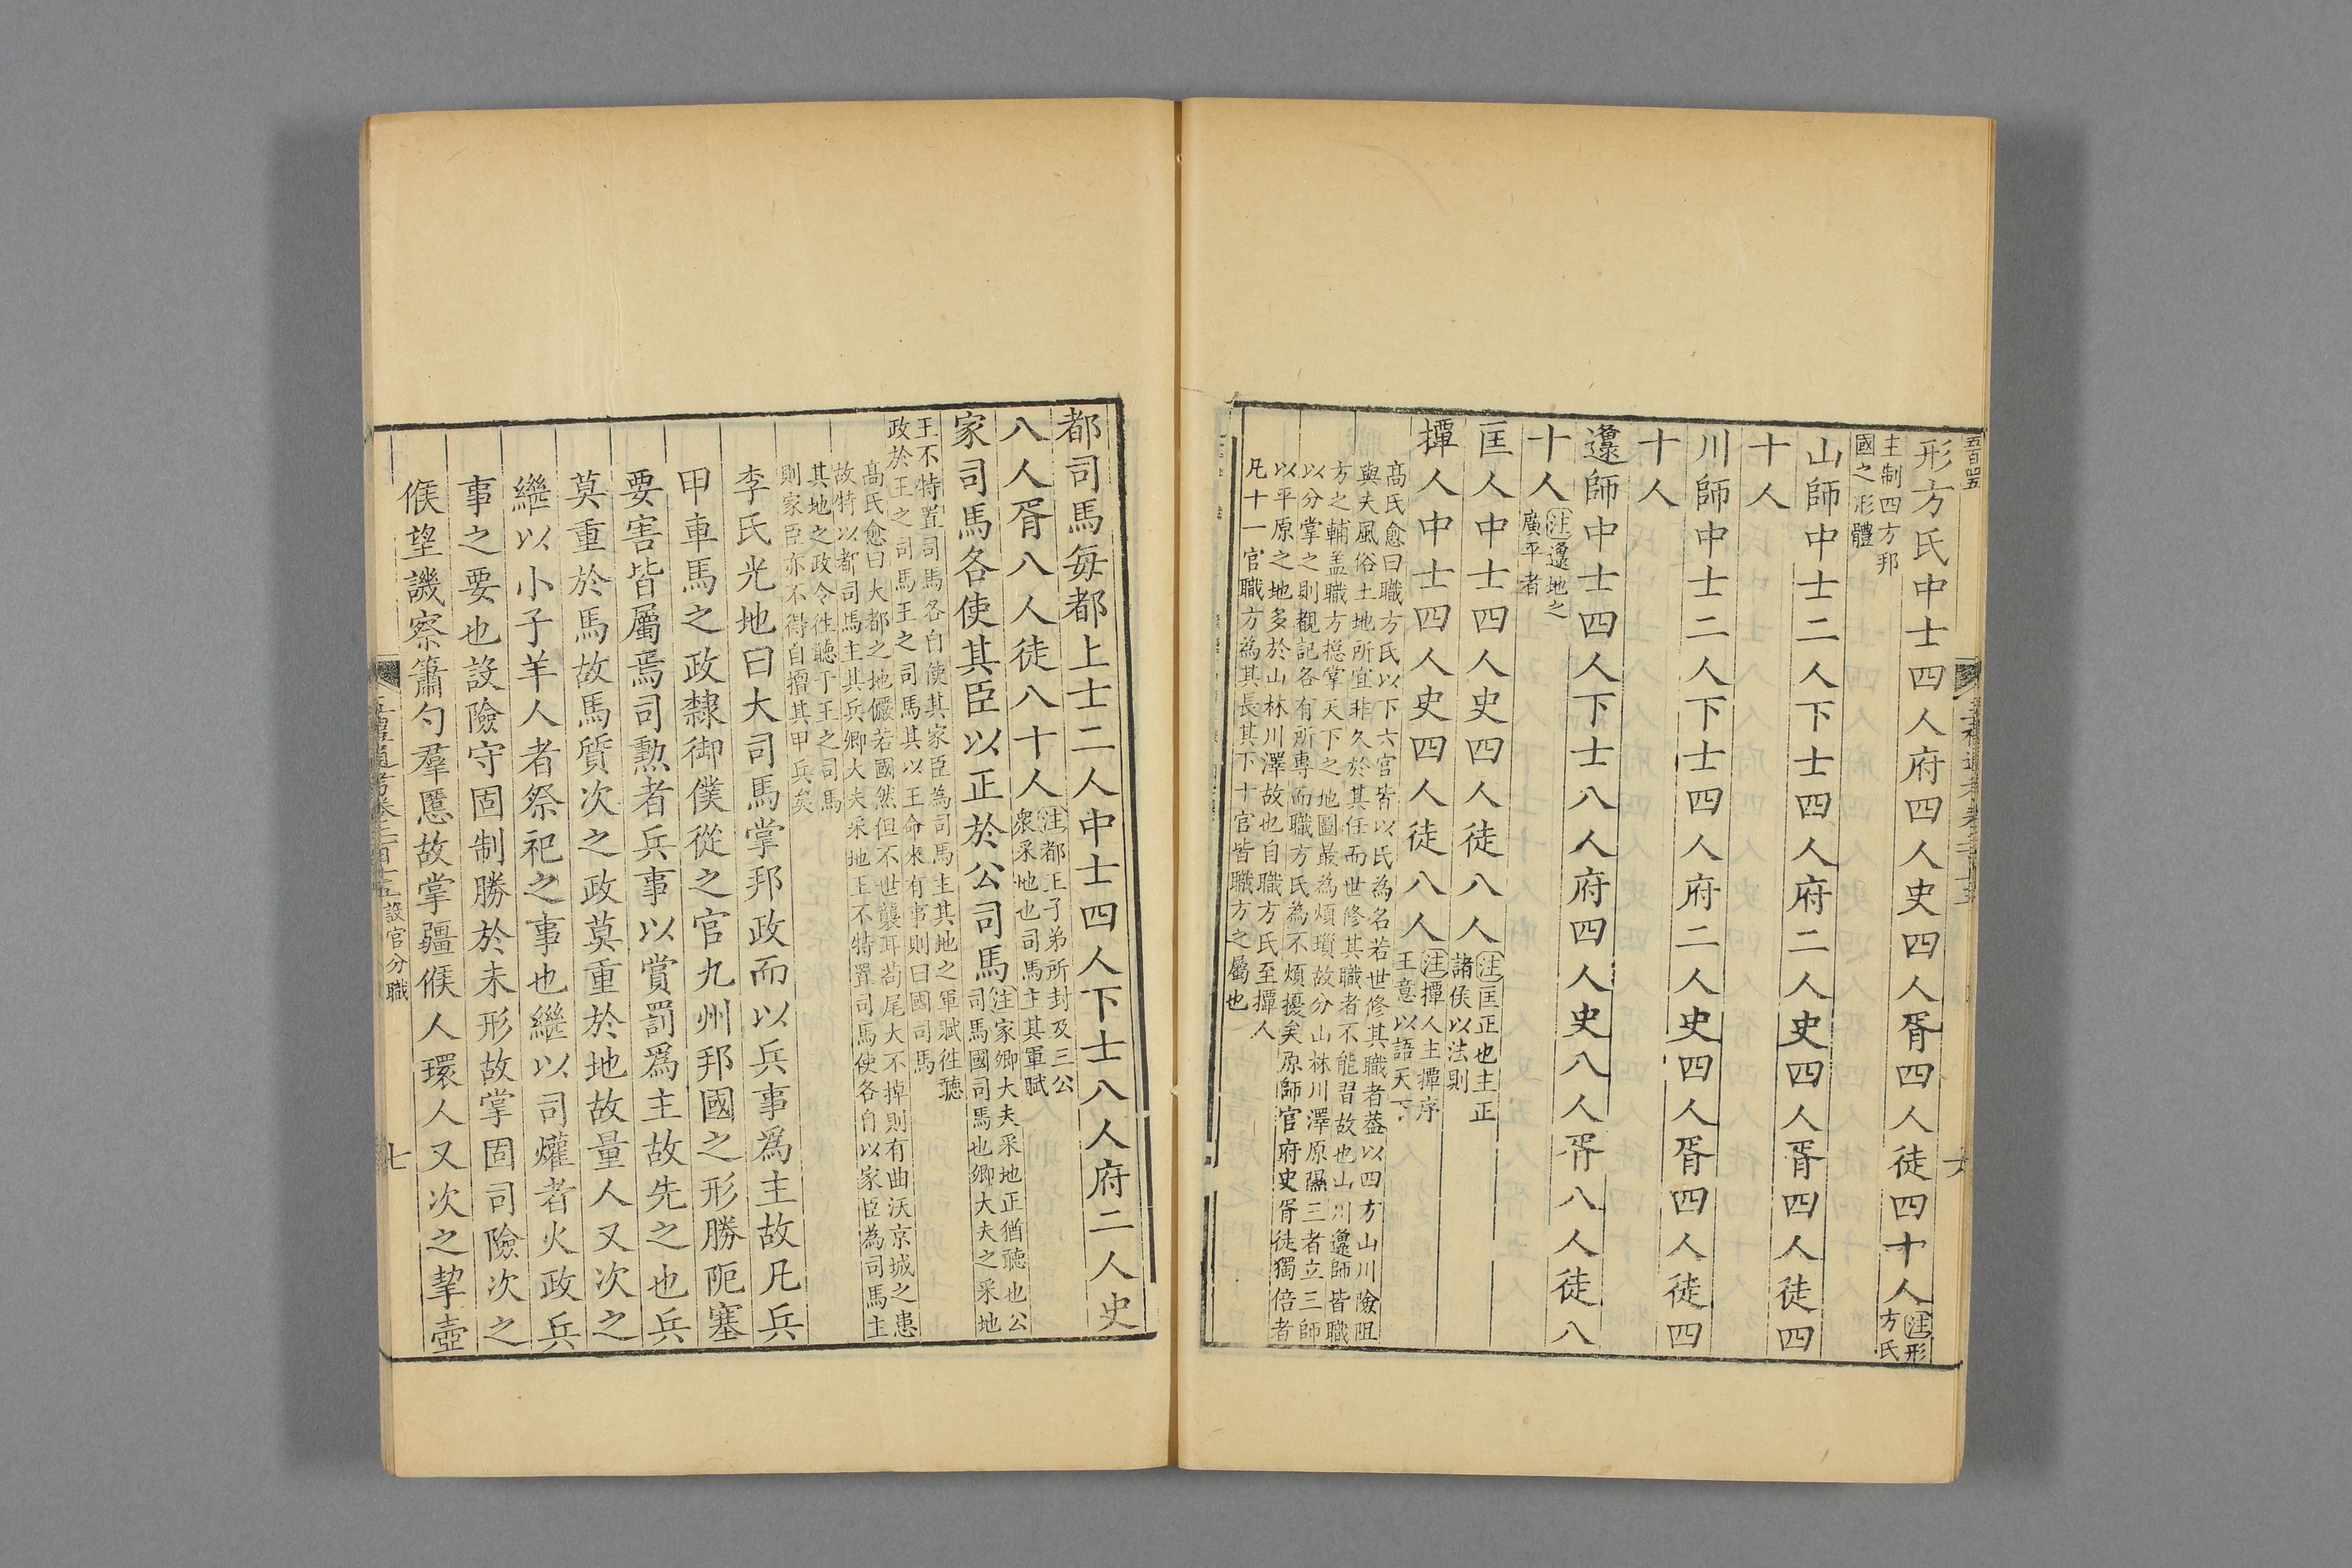 形方氏中士四人府四人史四人胥四人徒四十人注形方氏
主制四方邦
國之形體
山師中士二人下士四人府二人史四人胥四人徒四
十人
川師中士二人下士四人府二人史四人胥四人徒四
十人
邍師中士四人下士八人府四人史八人胥八人徒八
十人注邍地之廣平者
匡人中士四人史四人徒八人注匡正也主正諸侯以法則
撢人中士四人史四人徒八人注撢人主撢序王意以語天下
髙氏愈曰職方氏以下六官皆以氏為名若世修其職者葢以四方山川險阻
與夫風俗土地所宜非久於其任而世修其職者不能習故也山川邍師皆職
方之輔盖職方揔掌天下之地圖最為煩瑣故分山林川澤原隰三者立三師
以分掌之則觀記各有所專而職方氏為不煩擾矣原師官府史胥徒獨倍者
以平原之地多於山林川澤故也自職方氏至撢人
凡十一官職方為其長其下十官皆職方之屬也
都司馬每都上士二人中士四人下士八人府二人史
八人胥八人徒八十人注都王子弟所封及三公采地也司馬主其軍賦
家司馬各使其臣以正於公司馬注家卿大夫采地正猶聽也公司馬國司馬也卿大夫之采地
王不特置司馬各自使其家臣為司馬主其地之軍賦徃聽
政於王之司馬王之司馬其以王命來有事則曰國司馬
髙氏愈曰大都之地儼若國然但不世襲耳茍尾大不掉則有曲沃京城之患
故特以都司馬主其兵卿大夫采地王不特置司馬使各自以家臣為司馬主
其地之政令徃聽于王之司馬
則家臣亦不得自擅其甲兵矣
李氏光地曰大司馬掌邦政而以兵事為主故凡兵
甲車馬之政隸御僕從之官九州邦國之形勝阨塞
要害皆屬焉司勲者兵事以賞罰為主故先之也兵
莫重於馬故馬質次之政莫重於地故量人又次之
繼以小子羊人者祭祀之事也繼以司爟者火政兵
事之要也設險守固制勝於未形故掌固司險次之
候望譏察籌勺羣慝故掌疆候人環人又次之挈壺
設官分職
七